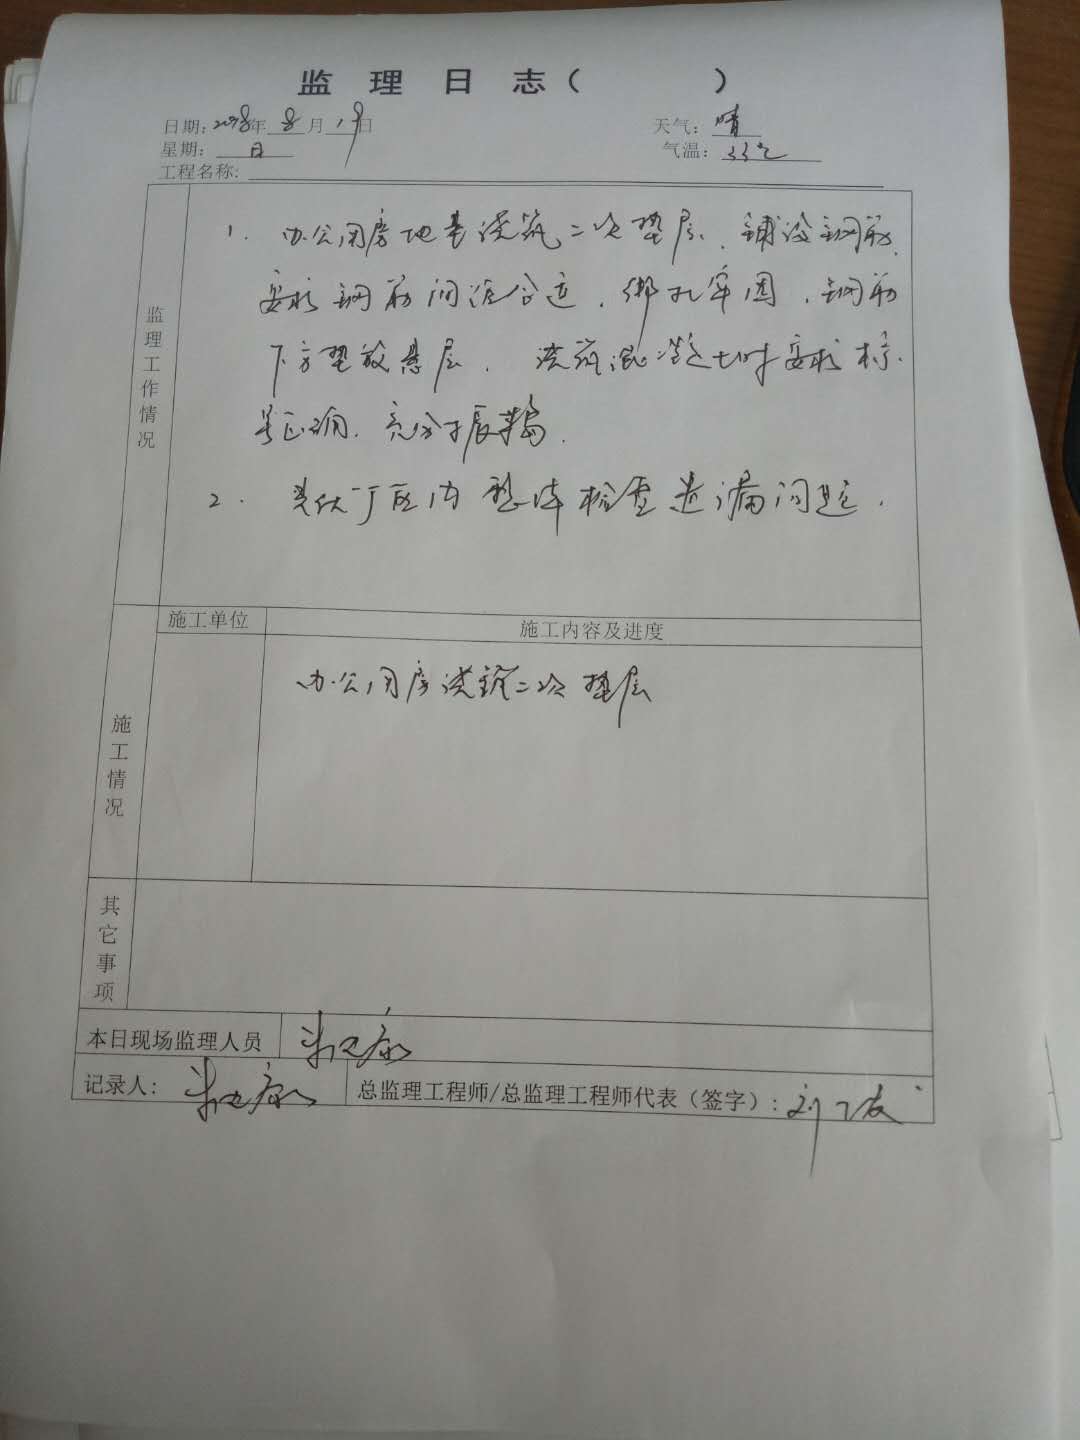 监 理 日 志 (          )
日期: 2018年 8 月 19日 天气: 晴
星期: 日 气温: 33℃
工程名称:
监理工作情况
1. 办公用房地基浇筑二次垫层、铺设钢筋,
要求钢筋间距合适,绑扎牢固,钢筋
下方垫放悬层. 浇筑混凝土时要求标
号正确、充分振捣.
2. 光伏厂区内整体检查遗漏问题.
施工单位 施工内容及进度
施工情况
办公用房浇筑二次垫层
其它事项
本日现场监理人员
记录人: 总监理工程师/总监理工程师代表（签字）: 刘